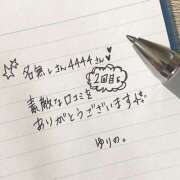 名無しさん4444さん♥
2回目
素敵な口コミを
ありがとうございます
ゆりの。